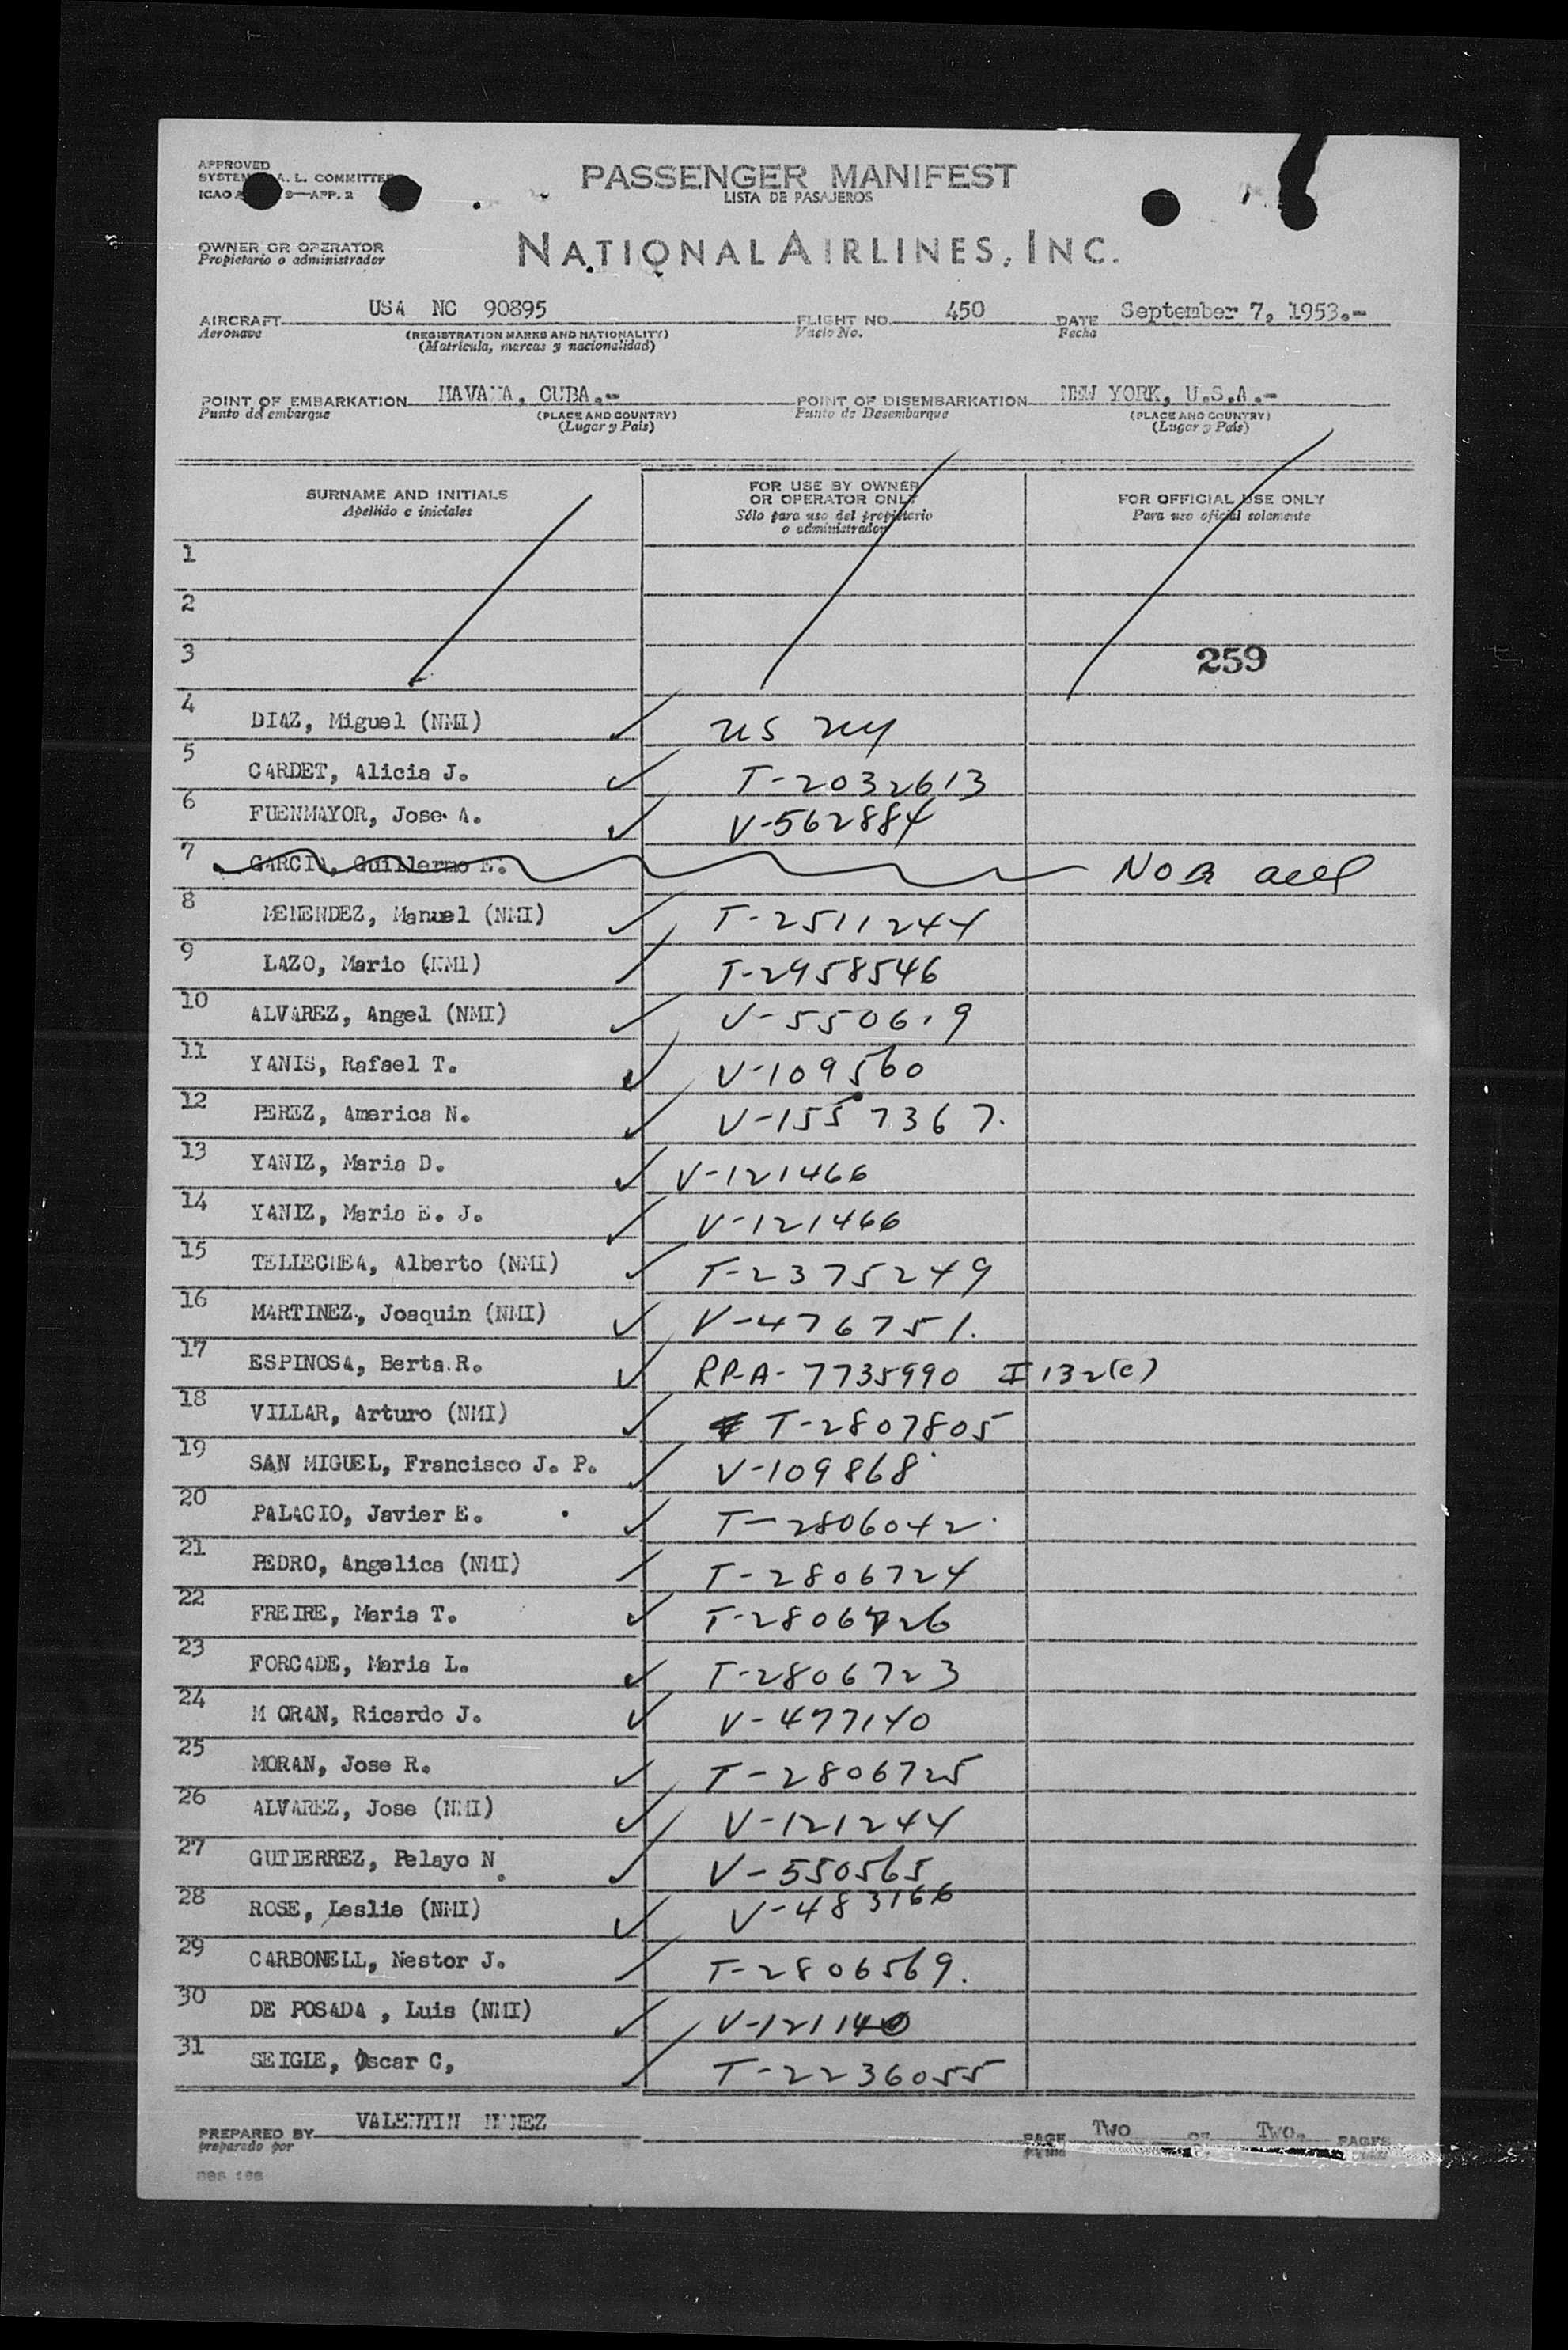 APPROVED
SYSTEM A. L. COMMITTEE
ICAO A 9—APP. 2
PASSENGER MANIFEST
LISTA DE PASAJEROS
OWNER OR OPERATOR
Propietario o administrador
NATIONAL AIRLINES, INC.
AIRCRAFT USA NC 90895 FLIGHT NO. 450 DATE September 7, 1953.-
Aeronave (REGISTRATION MARKS AND NATIONALITY) Vuelo No. Fecha
(Matrícula, marcas y nacionalidad)
POINT OF EMBARKATION HAVANA, CUBA.- POINT OF DISEMBARKATION NEW YORK, U.S.A.-
Punto de embarque (PLACE AND COUNTRY) Punto de Desembarque (PLACE AND COUNTRY)
(Lugar y País) (Lugar y País)
SURNAME AND INITIALS FOR USE BY OWNER OR OPERATOR ONLY FOR OFFICIAL USE ONLY
Apellido e iniciales Sólo para uso del propietario o administrador Para uso oficial solamente
1
2
3 259
4 DIAZ, Miguel (NMI) US
5 CARDET, Alicia J. T-2032613
6 FUENMAYOR, Jose A. V-562884
7 GARCIA, Guillermo E. NOB
8 MENENDEZ, Manuel (NMI) T-2511244
9 LAZO, Mario (NMI) T-2958546
10 ALVAREZ, Angel (NMI) V-550619
11 YANIS, Rafael T. V-109560
12 PEREZ, America N. V-1557367.
13 YANIZ, Maria D. V-121466
14 YANIZ, Maria E. J. V-121466
15 TELLECHEA, Alberto (NMI) T-2375249
16 MARTINEZ, Joaquin (NMI) V-476751.
17 ESPINOSA, Berta R. RP-A-7735990 I 132(c)
18 VILLAR, Arturo (NMI) T-2807805
19 SAN MIGUEL, Francisco J. P. V-109868
20 PALACIO, Javier E. T-2806042
21 PEDRO, Angelica (NMI) T-2806724
22 FREIRE, Maria T. T-2806726
23 FORCADE, Maria L. T-2806723
24 M ORAN, Ricardo J. V-477140
25 MORAN, Jose R. T-2806725
26 ALVAREZ, Jose (NMI) V-121244
27 GUTIERREZ, Pelayo N. V-550565
28 ROSE, Leslie (NMI) V-483166
29 CARBONELL, Nestor J. T-2806569.
30 DE POSADA , Luis (NMI) V-121140
31 SEIGLE, Oscar C, T-2236055
PREPARED BY VALENTIN NUNEZ PAGE TWO OF TWO. PAGES
preparado por